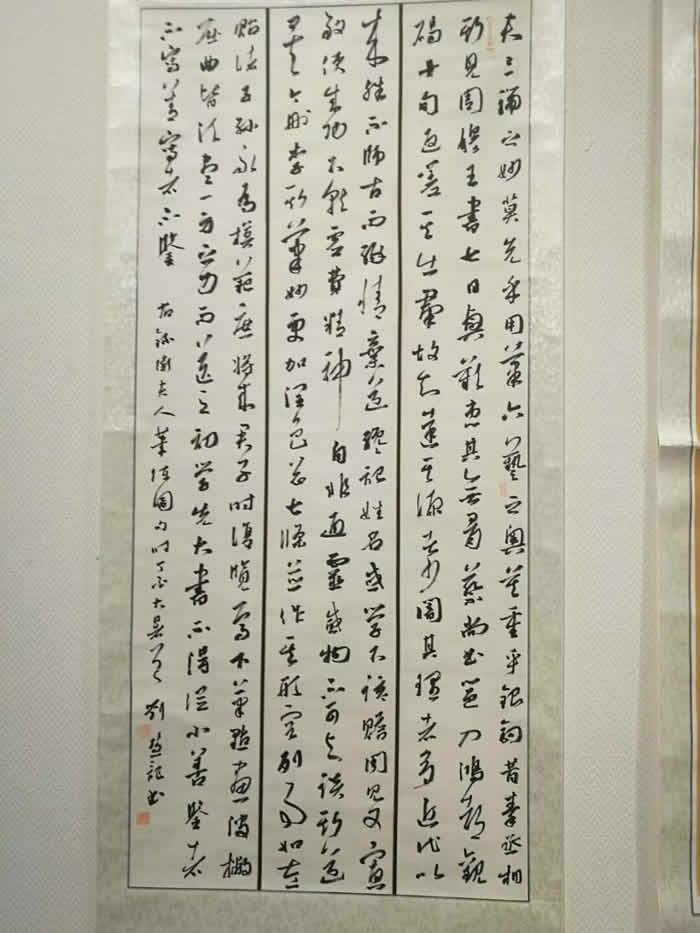 夫三端之妙莫先乎用筆六藝之奧莫重乎銀鉤昔秦丞相
斯見周穆王書七日興歎患其無骨蔡尚書邕入鴻都觀
碣十旬返嗟其出羣故知達其源者少闇其理者多近代以
來殊不師古而緣情棄道纔記姓名或學不該贍聞見又寡
致使成功不就虛費精神自非通靈感物不可與談斯道
矣今刪李斯筆妙更加潤色總七條並作其形容列事如左
貽諸子孫永為模範庶將來君子時復覽焉下筆點畫波撇
屈曲皆須盡一身之力而送之初學先大書不得從小善鑒者
不寫善寫者不鑒 右錄衛夫人筆陣圖句時丁酉大暑 劉 書